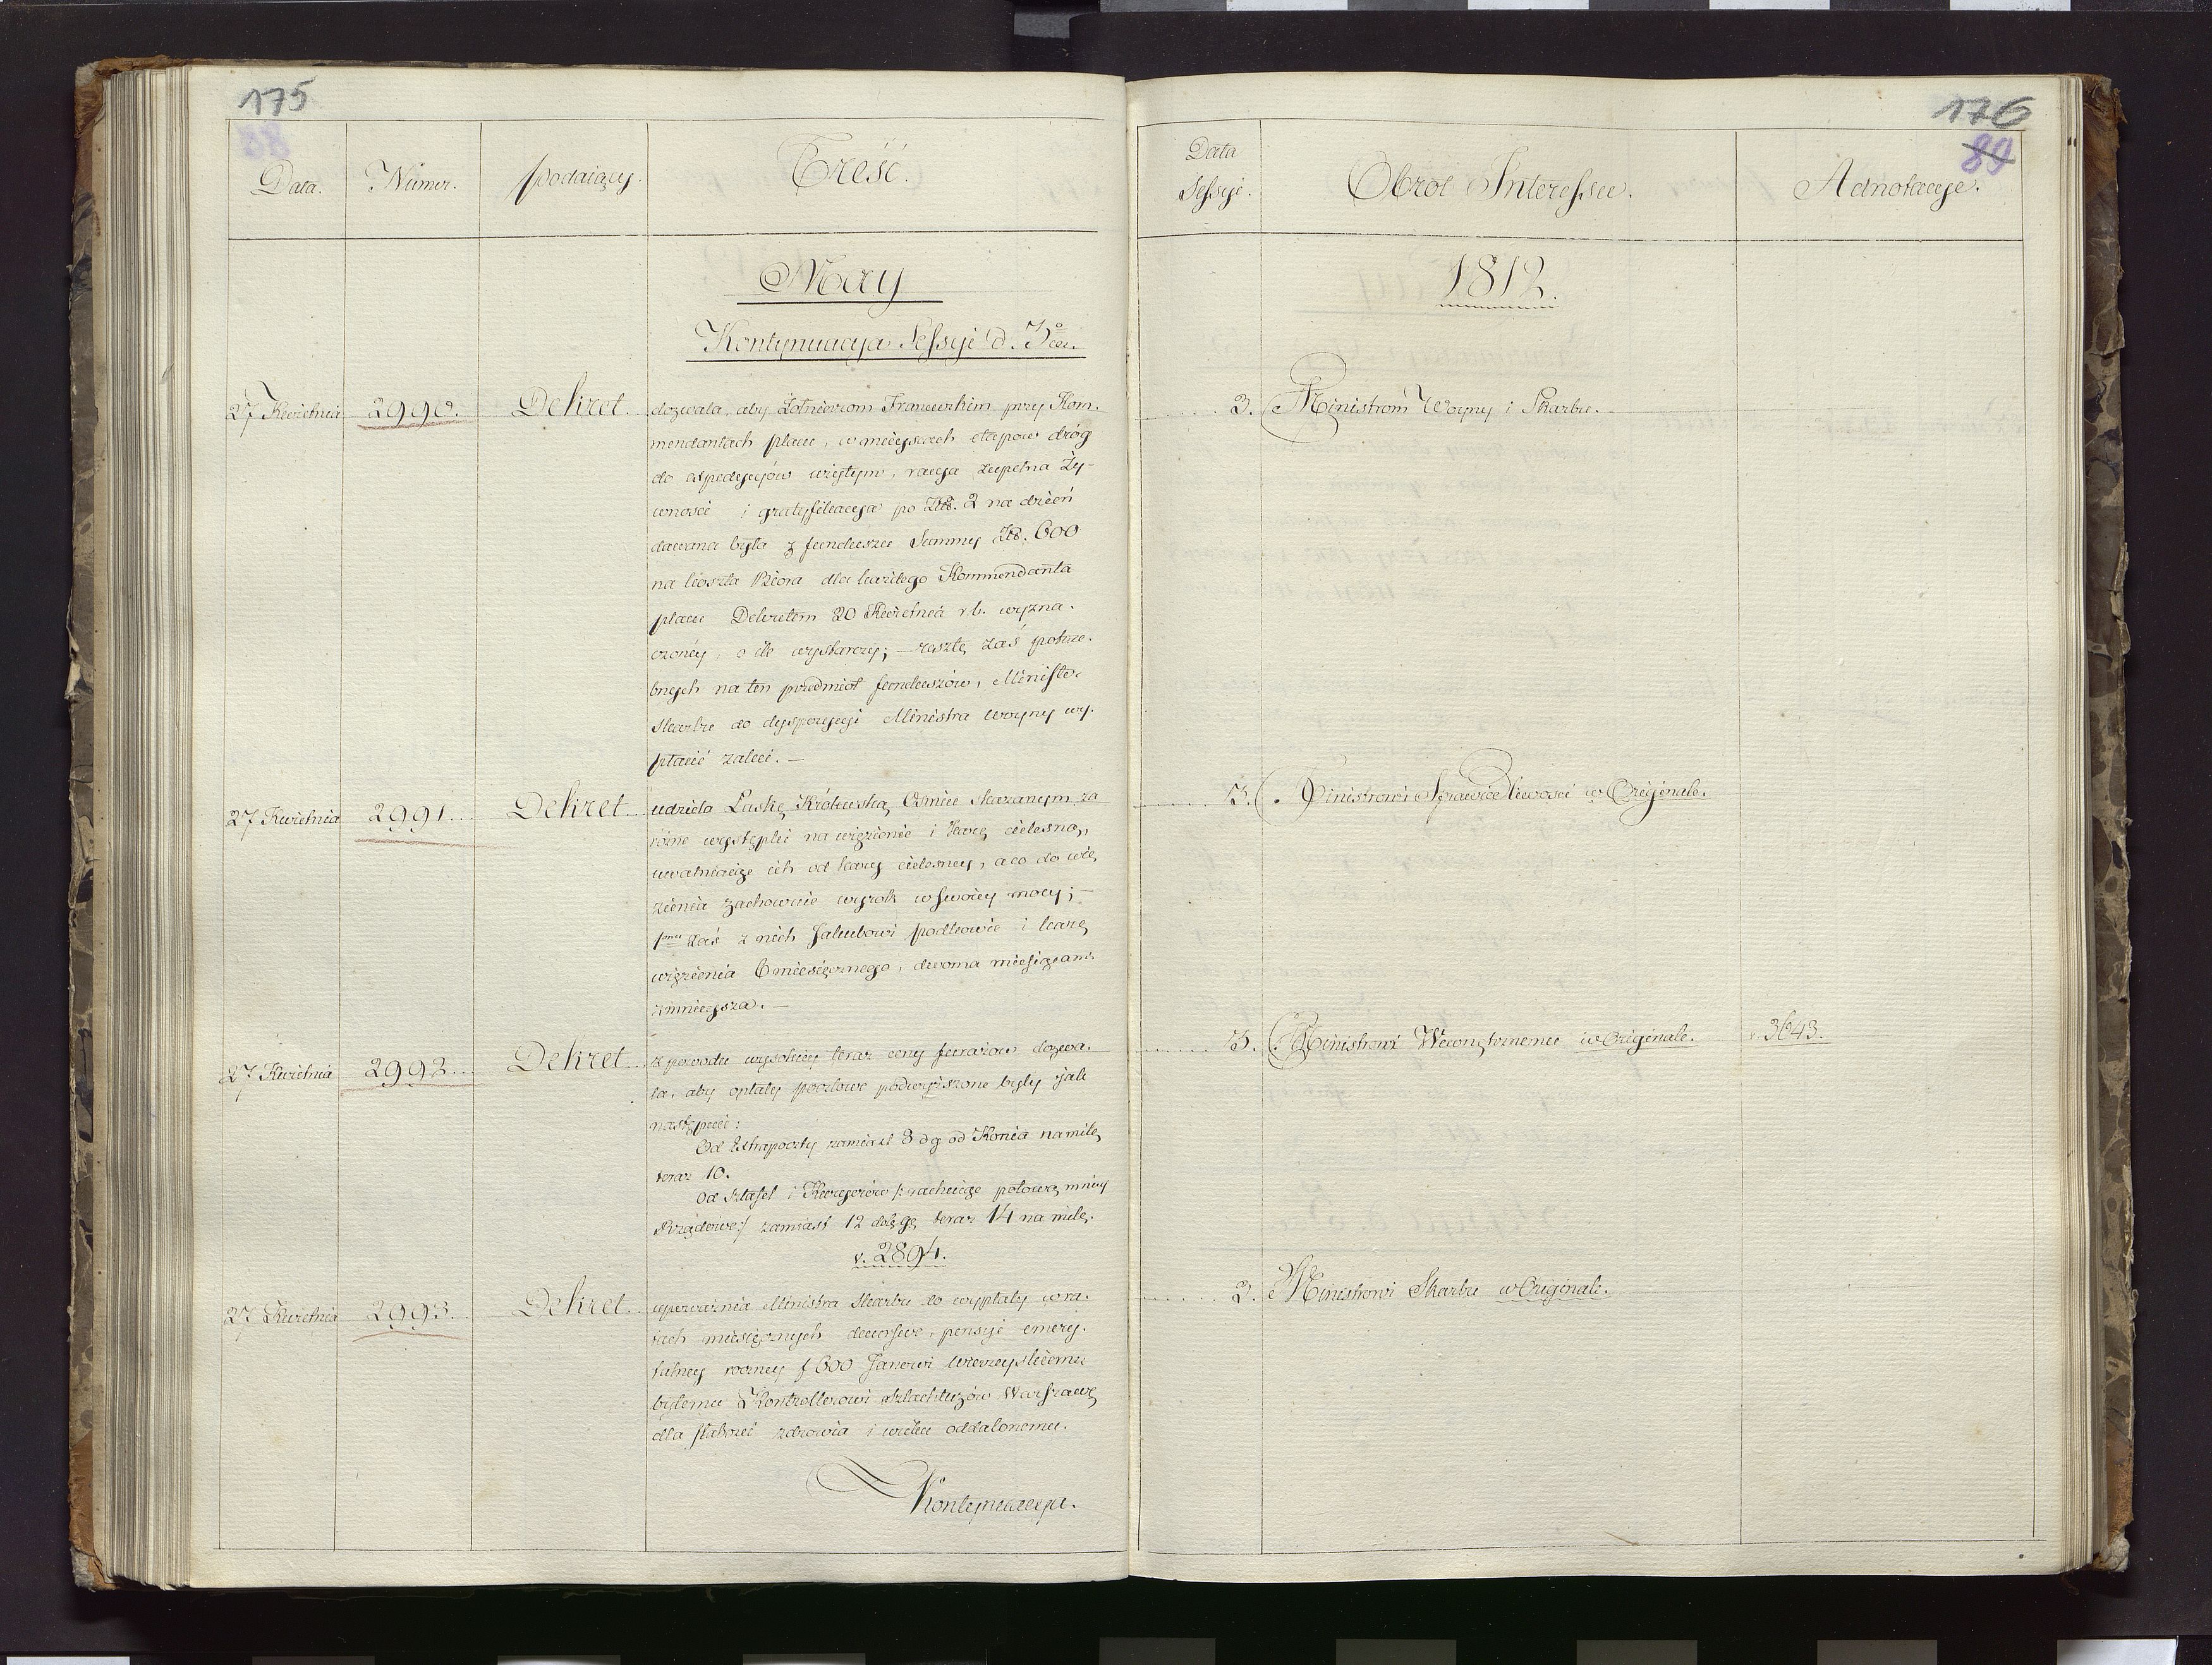 175
Data. Numer. podaiący. Treść.
May
Kontynuacya Sessyi d. 3º
27 Kwietnia 2990. Dekret
dozwala, aby Żołnierzom Francuzkim przy Kom-
mendantach placu, w mieyscach etapow dróg
do expedycyów użytym, racya zupełna Ży-
wności i gratyfikacya po Złł. 2 na dzień
dawana była z funduszu Summy Zł. 600
na koszta Biora dla każdego Kommendanta
placu Dekretem 20 Kwietnia r.b. wyzna-
czoney, o ile wystarczy; — resztę zaś potrze-
bnych na ten przedmiot funduszów, Minister
Skarbu do dyspozycyi Ministra woyny wy-
płacić zaleci. —
27 Kwietnia 2991. Dekret
udziela Łaskę Królewską Ośmiu skazanym za
różne występki na więzienie i karę cielesną,
uwalniaiąc ich od kary cielesney, a co do wię
zienia zachowuie wyrok w swoiey mocy; —
1mu zaś z nich Jakubowi i karę
więzienia 6 miesięcznego, dwoma miesiącami
zmnieysza. —
27 Kwietnia 2992. Dekret
z powodu wysokiey teraz ceny furażow dozwa-
la, aby opłaty pocztowe podwyższone były jak
następuie:
Od Extrapoczty zamiast 8 dg od Konia na milę
teraz 10.
Od sztafet i Kuryerów /: rachuiąc połowę mniey
Rządowe:/ zamiast 12 teraz 14 na milę.
v. 2894.
27 Kwietnia 2993. Dekret
upoważnia Ministra Skarbu do wypłaty w ra-
tach miesięcznych pensyi emery-
talney roczney f 600 Janowi
byłemu Kontrollerowi Szlachtuzów Warszawę
dla słabości zdrowia i wieku oddalonemu.
Kontynuacya.
176
89
Data Sessyi. Obrot Interessu. Adnotacye.
1812.
3. Ministrom Woyny i Skarbu.
3. Ministrowi Sprawiedliwości w Originale.
3. Ministrowi Wewnętrznemu w Originale. v. 3643.
3. Ministrowi Skarbu w Originale.